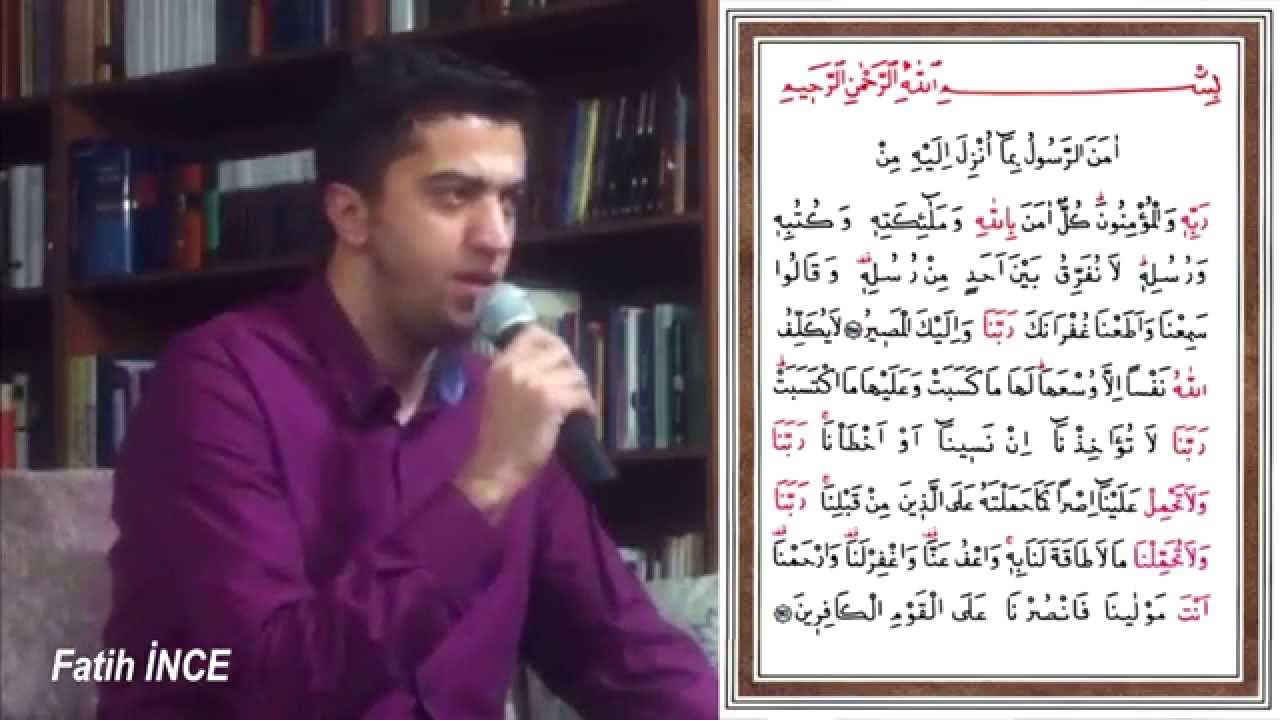 بِسْــــمِ اللّٰهِ الرَّحْمٰنِ الرَّحٖيمِ
اٰمَنَ الرَّسُولُ بِمَٓا اُنْزِلَ اِلَيْهِ مِنْ
رَبِّهٖ وَالْمُؤْمِنُونَۜ كُلٌّ اٰمَنَ بِاللّٰهِ وَمَلٰٓئِكَتِهٖ وَكُتُبِهٖ
وَرُسُلِهٖۜ لَا نُفَرِّقُ بَيْنَ اَحَدٍ مِنْ رُسُلِهٖ۠ وَقَالُوا
سَمِعْنَا وَاَطَعْنَا غُفْرَانَكَ رَبَّنَا وَاِلَيْكَ الْمَصٖيرُ لَا يُكَلِّفُ
اللّٰهُ نَفْسًا اِلَّا وُسْعَهَاۜ لَهَا مَا كَسَبَتْ وَعَلَيْهَا مَا اكْتَسَبَتْۜ
رَبَّنَا لَا تُؤَاخِذْنَٓا اِنْ نَسٖينَٓا اَوْ اَخْطَاْنَاۚ رَبَّنَا
وَلَا تَحْمِلْ عَلَيْنَٓا اِصْرًا كَمَا حَمَلْتَهُ عَلَى الَّذٖينَ مِنْ قَبْلِنَاۚ رَبَّنَا
وَلَا تُحَمِّلْنَا مَا لَا طَاقَةَ لَنَا بِهٖۚ وَاعْفُ عَنَّا۠ وَاغْفِرْ لَنَا۠ وَارْحَمْنَا۠
اَنْتَ مَوْلٰينَا فَانْصُرْنَا عَلَى الْقَوْمِ الْكَافِرٖينَ
Fatih İNCE